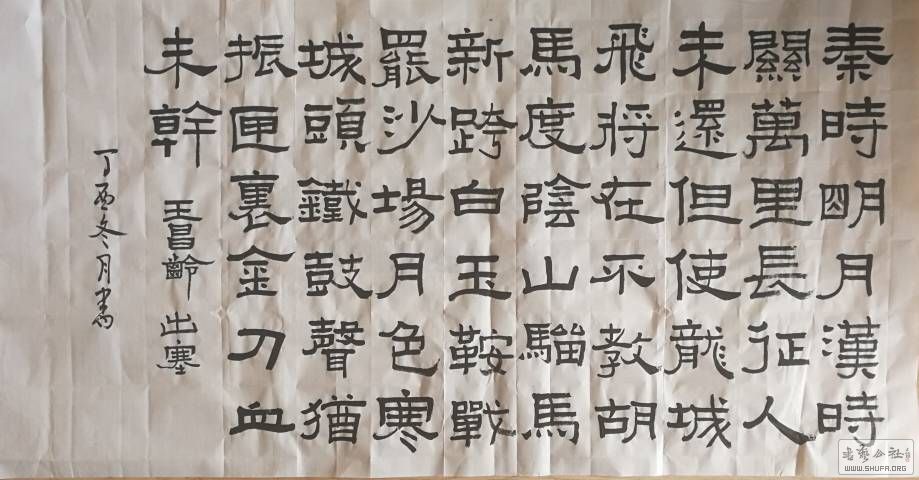 秦時明月漢時
關萬里長征人
未還但使龍城
飛將在不教胡
馬度陰山騮馬
新跨白玉鞍戰
罷沙場月色寒
城頭鐵鼓聲猶
振匣裏金刀血
未幹 王昌齡 出塞
丁酉冬月書
書藝公社
WWW.SHUFA.ORG